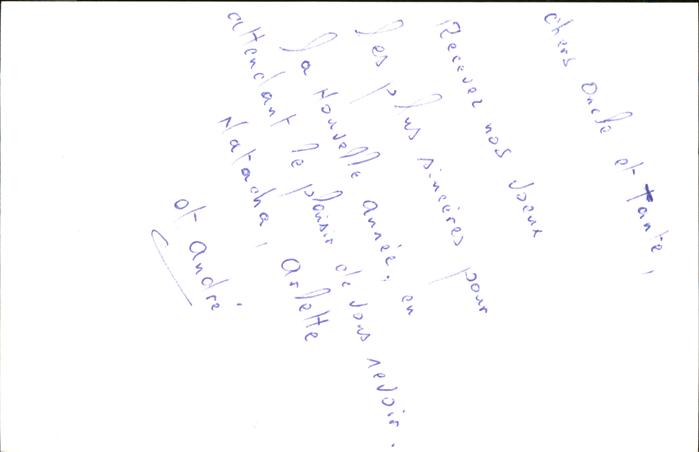 Chers Oncle et Tante,
Recevez nos voeux
les plus sincères pour
la Nouvelle année, en
attendant le plaisir de vous revoir.
Natacha, Arlette
et André